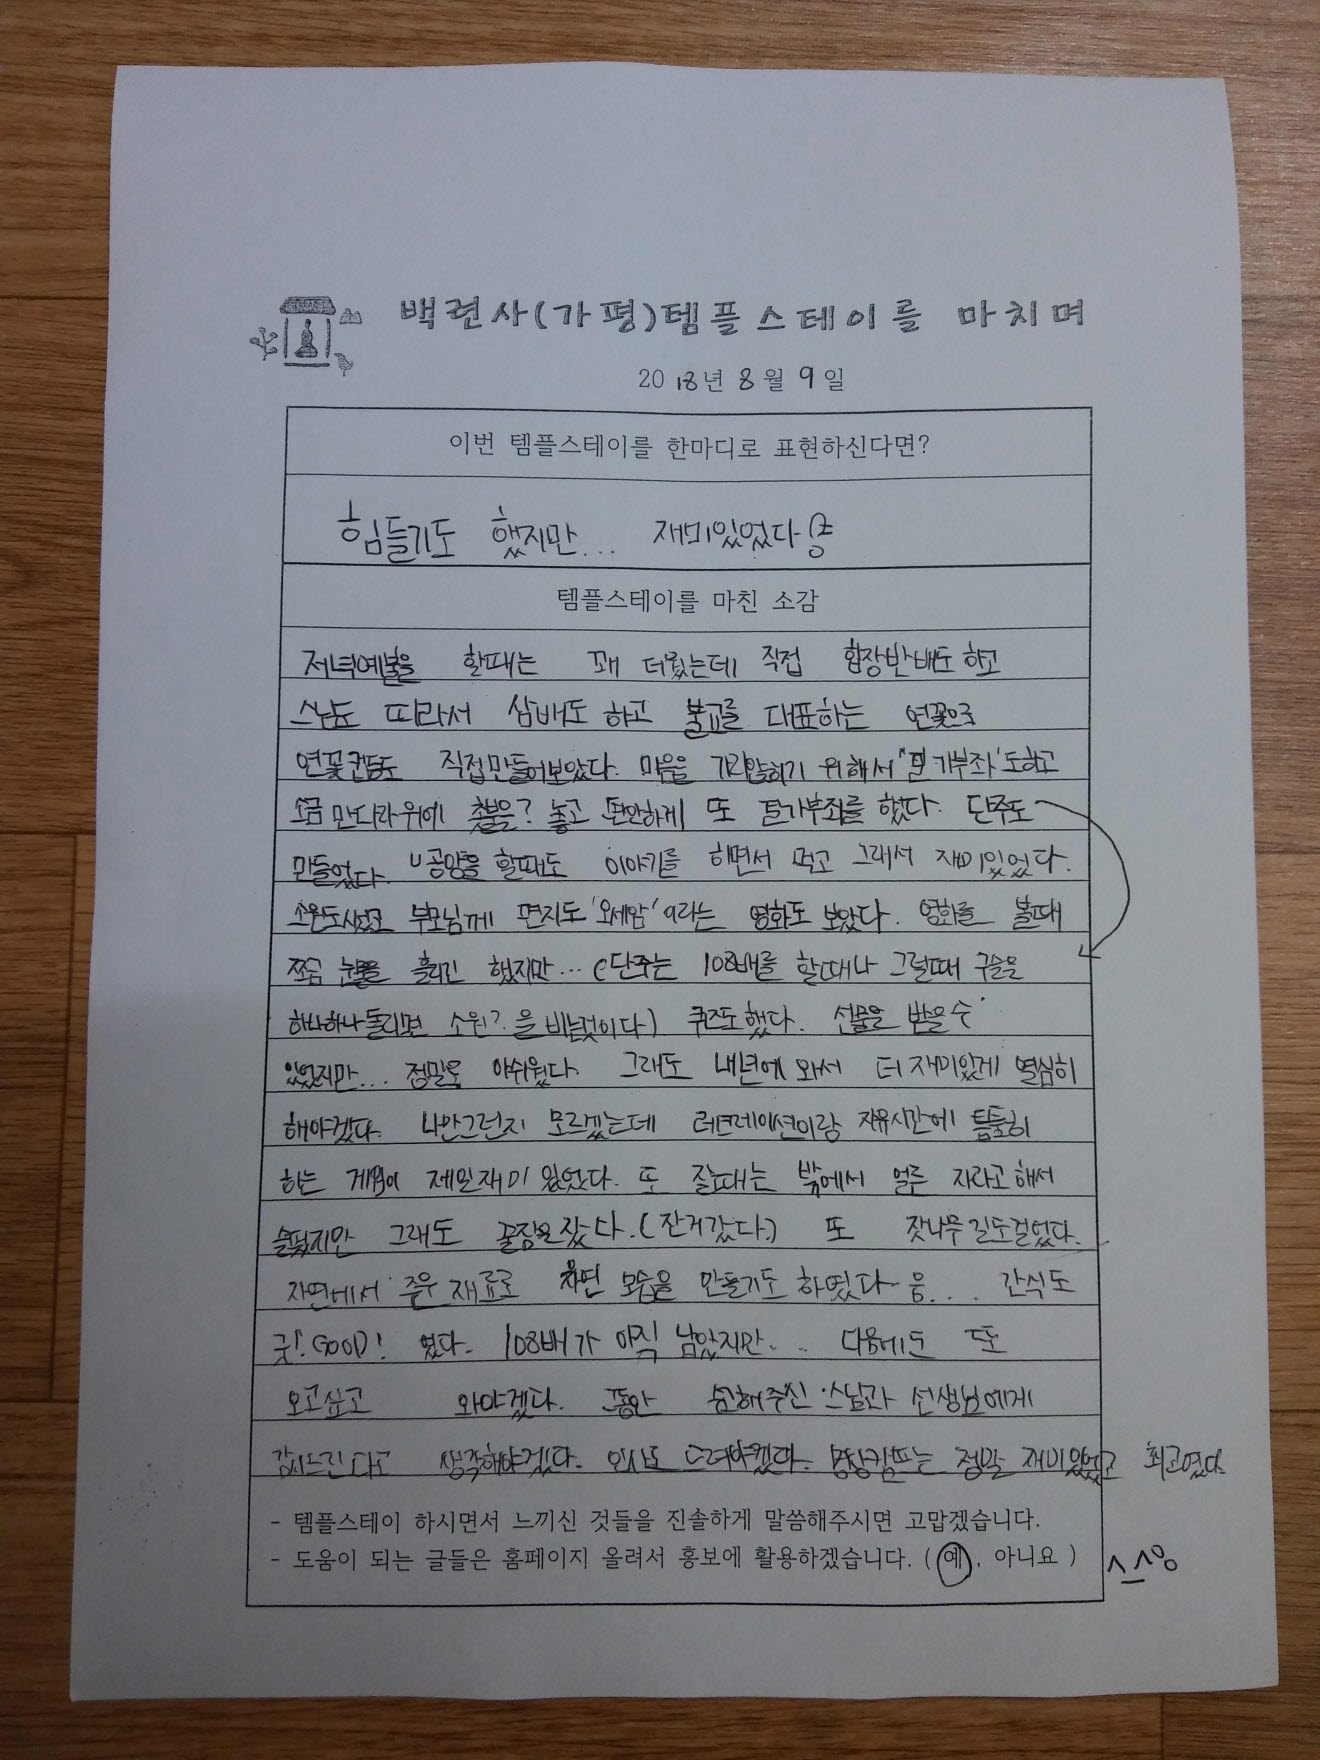 백련사(가평)템플스테이를 마치며
2018년 8월 9일
이번 템플스테이를 한마디로 표현하신다면?
힘들기도 했지만... 재미있었다
템플스테이를 마친 소감
저녁예불을 할때는 꽤 더웠는데 직접 합장반배도 하고
스님도 따라서 삼배도 하고 불교를 대표하는 연꽃으로
연꽃컵등도 직접만들어보았다. 마음을 가라앉히기 위해서 '결가부좌'도하고
소금 만다라위에 촛불을? 놓고 편안하게 또 결가부좌를 했다. 단주도
만들었다. 공양을 할때도 이야기를 하면서 먹고 그래서 재미있었다.
부모님께 편지도 '오세암'이라는 영화도 보았다. 영화를 볼때
쪼금 눈물을 흘리긴 했지만... (단주는 108배를 할때나 그럴때 구슬을
하나하나돌리면 소원?을 비는것이다) 퀴즈도했다. 선물을 받을수
있었지만... 정말로 아쉬웠다. 그래도 내년에 와서 더 재미있게 열심히
해야겠다. 나만그런지 모르겠는데 레크레이션이랑 자유시간에 틈틈히
하는 게임이 제일재미있었다. 또 잘때는 밖에서 얼른 자라고해서
슬펐지만 그래도 꿀잠을잤다. 또 잣나무길도걸었다.
자연에서 주운 재료로 자연 모습을 만들기도 하였다 음... 간식도
굿! GOOD! 였다. 108배가 아직 남았지만... 다음에도 또
오고싶고 와야겠다. 그동안 해주신 스님과 선생님에게
감사드린다고 생각해야겠다. 인사도 드려야겠다. 명상캠프는 정말 재미있었고 최고였다
- 템플스테이 하시면서 느끼신 것들을 진솔하게 말씀해주시면 고맙겠습니다.
- 도움이 되는 글들은 홈페이지 올려서 홍보에 활용하겠습니다. ( 예 , 아니요 ) ^_^